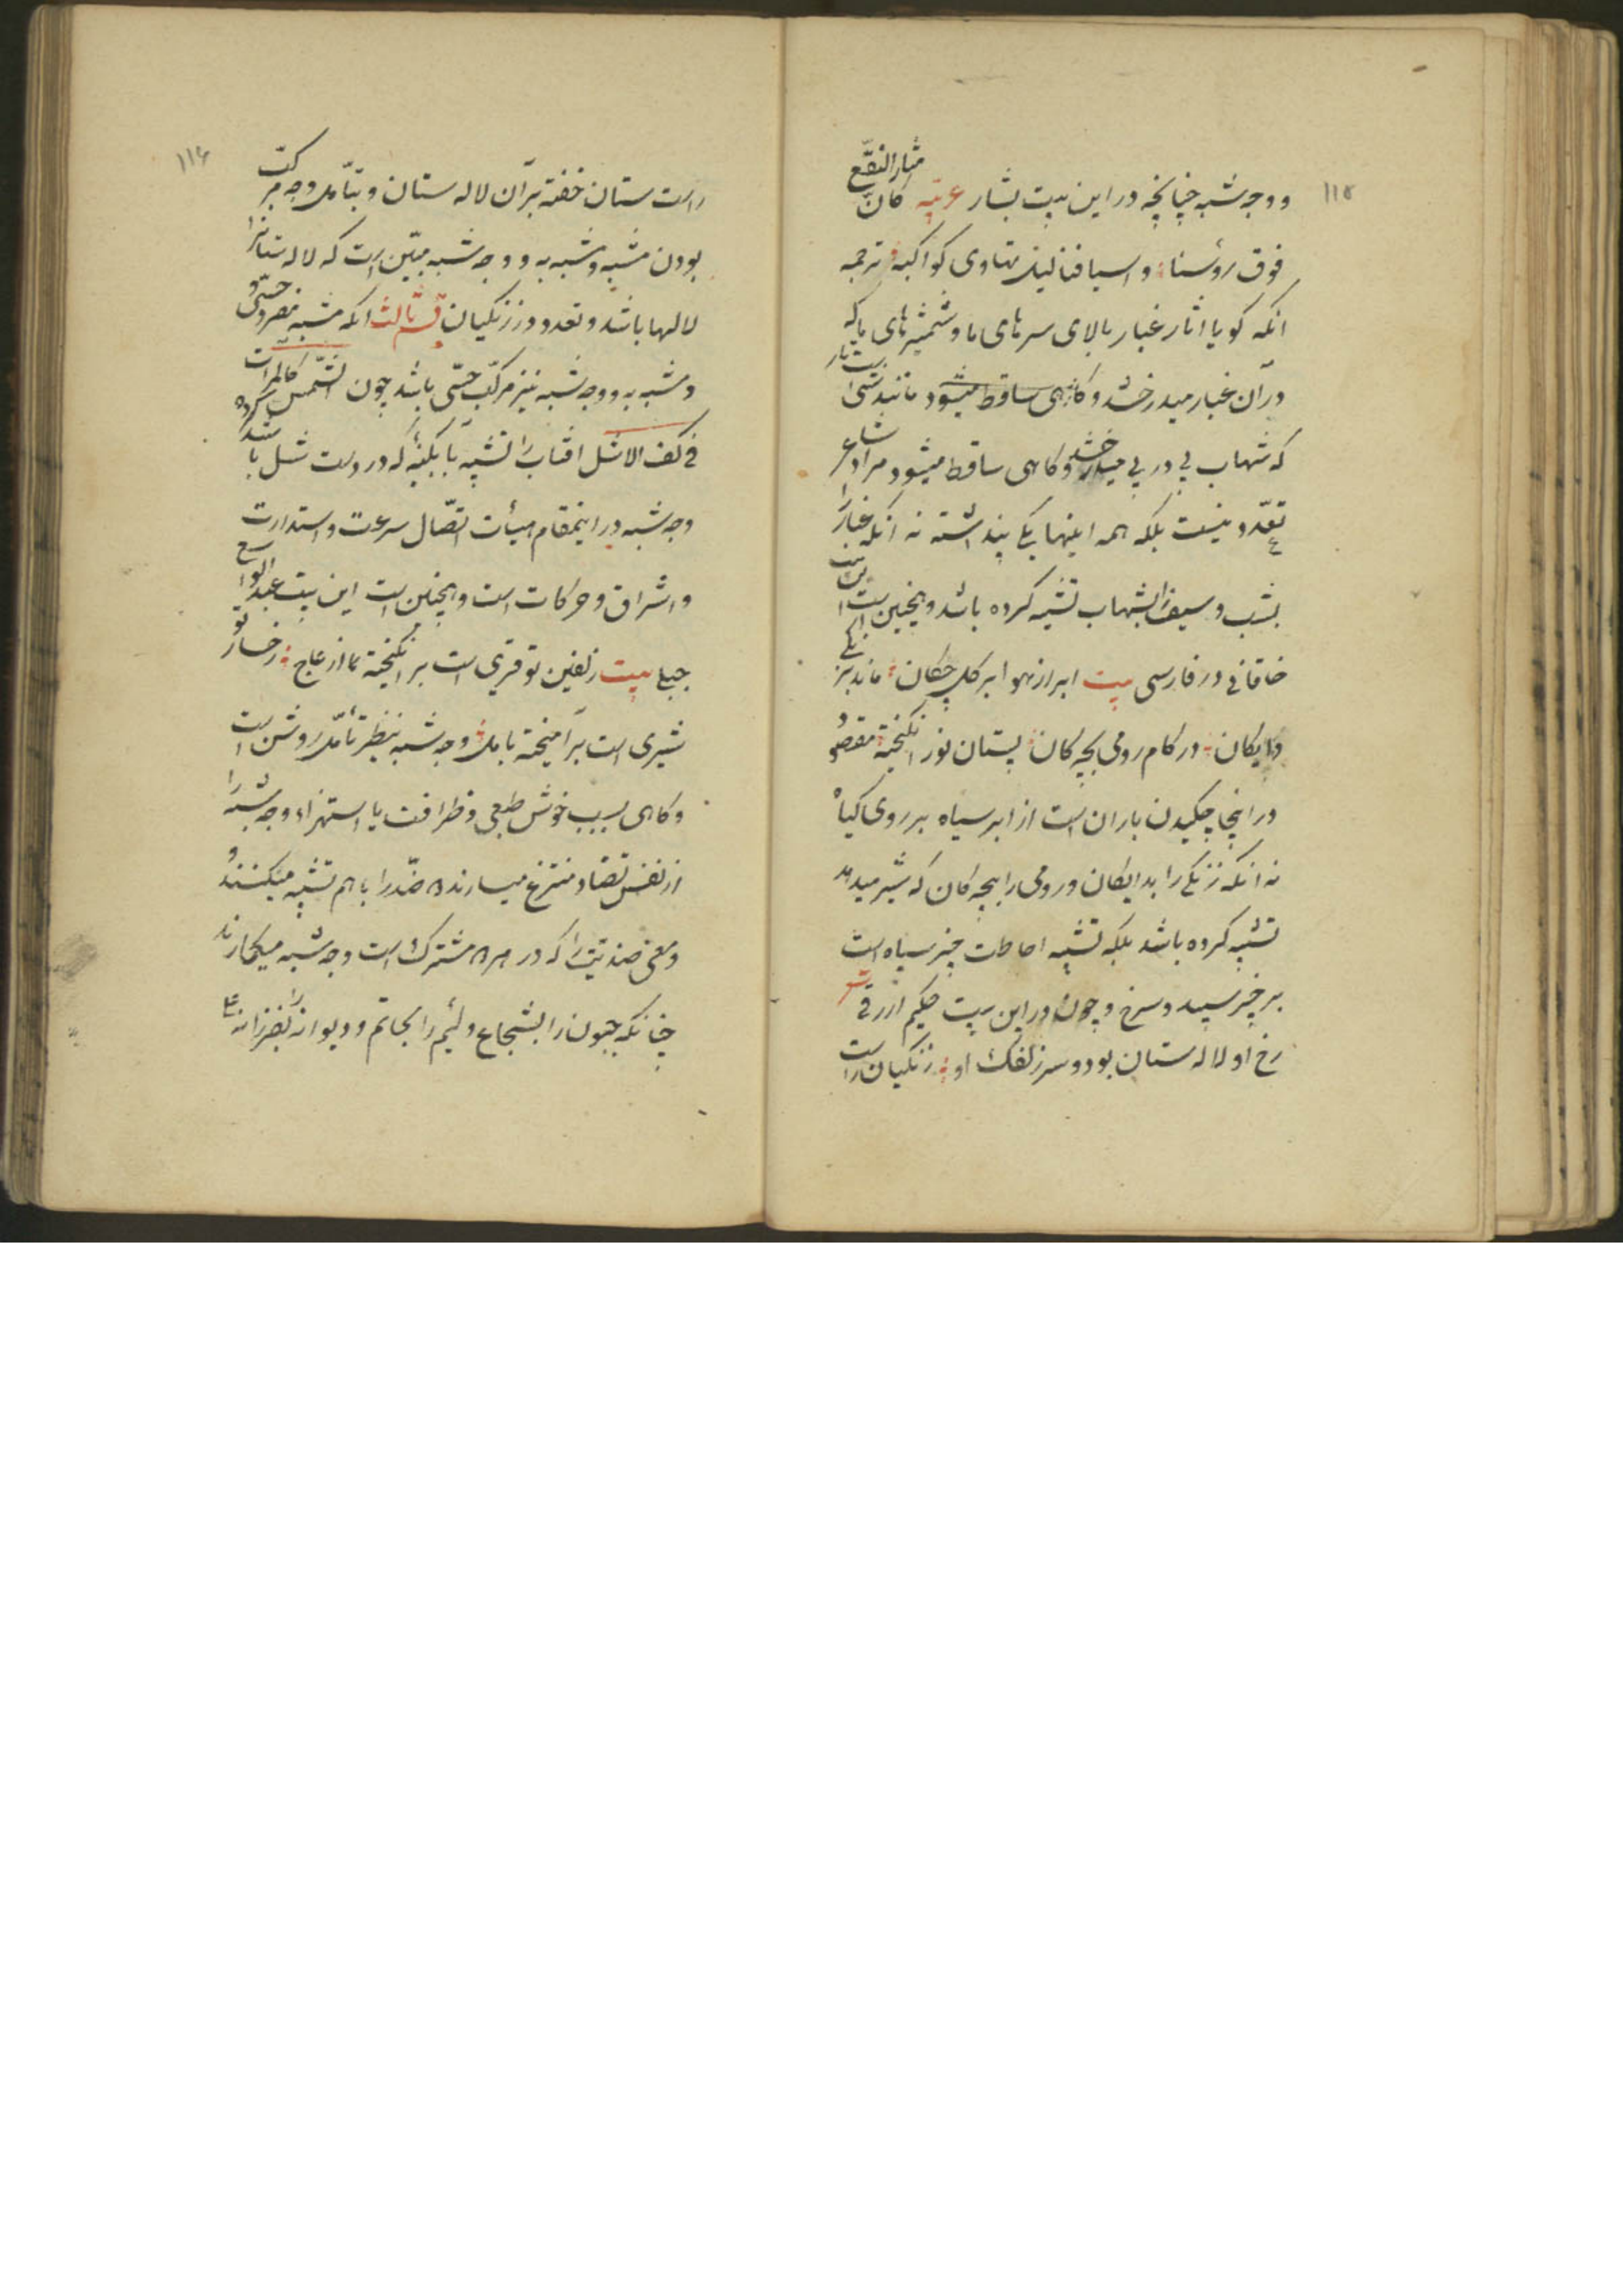 ۱۱۵
و وجه شبه چنانچه در این بیت بشار عربیّه کانّ مثار النقع
فوق رؤسنا و اسیافنا لیل تهاوی کواکبه ترجمه
انکه کویا اثار غبار بالای سرهای ما و شمشیرهای ما که
در آن غبار میدرخشد و کاهی ساقط میشود مانند شبی است تار
که شهاب پی در پی میدرخشد و کاهی ساقط میشود مراد شاعر
تعدّد نیست بلکه همه اینها یکی پنداشته نه انکه غبار را
بشب و سیف را بشهاب تشبیه کرده باشد و همچنین است این بیت
خاقانی در فارسی بیت ابر از هوا بر کل چکان ماند بزنکی
دایکان در کام رومی بچه کان پستان نور انکیخته مقصود
در اینجا چکیدن باران است از ابر سیاه بر روی کیاه
نه انکه زنکی را بدایکان و رومی را ببچه کان که شیر میدهد
تشبیه کرده باشد بلکه تشبیه احاطت چیز سیاه است
بر چیز سپید و سرخ و چون در این بیت حکیم ازرقی شعر
رخ او لاله ستان بود و سر زلفک او زنکیان راست
۱۱۶
راست ستان خفته بر آن لاله ستان و بتأمّل وجه مرکّب
بودن مشبه و مشبه به و وجه شبه مبیّن است که لاله ستانرا
لالها باشد و تعدد در زنکیان قسم ثالث انکه مشبه مفرد حسّی و
و مشبه به و وجه شبه نیز مرکّب حسّی باشد چون الشّمس کالمرات
فی کف الاشل افتاب را تشبیه بآبکینهٔ که در دست شل باشد کرده
وجه شبه در اینمقام هیأت اتّصال سرعت و استدارت
و اشراق و حرکات است و همچنین است این بیت عبد الواسع
جبلی بیت زلفین تو قیری است بر انکیخته از عاج رخسار تو
شیری است بر آمیخته با مل وجه شبه بنظر تأمّل روشن است
و کاهی بسبب خوش طبعی و ظرافت یا استهزاء وجه شبه را
از نفس تضاد منتزع میسازند ضدّ را باهم تشبیه میکنند و
معنی ضدیّت را که در هر مشترک است وجه شبه میکمارند
چنانکه جبون را بشجاع و لئیم را بحاتم و دیوانه را بفرزانه